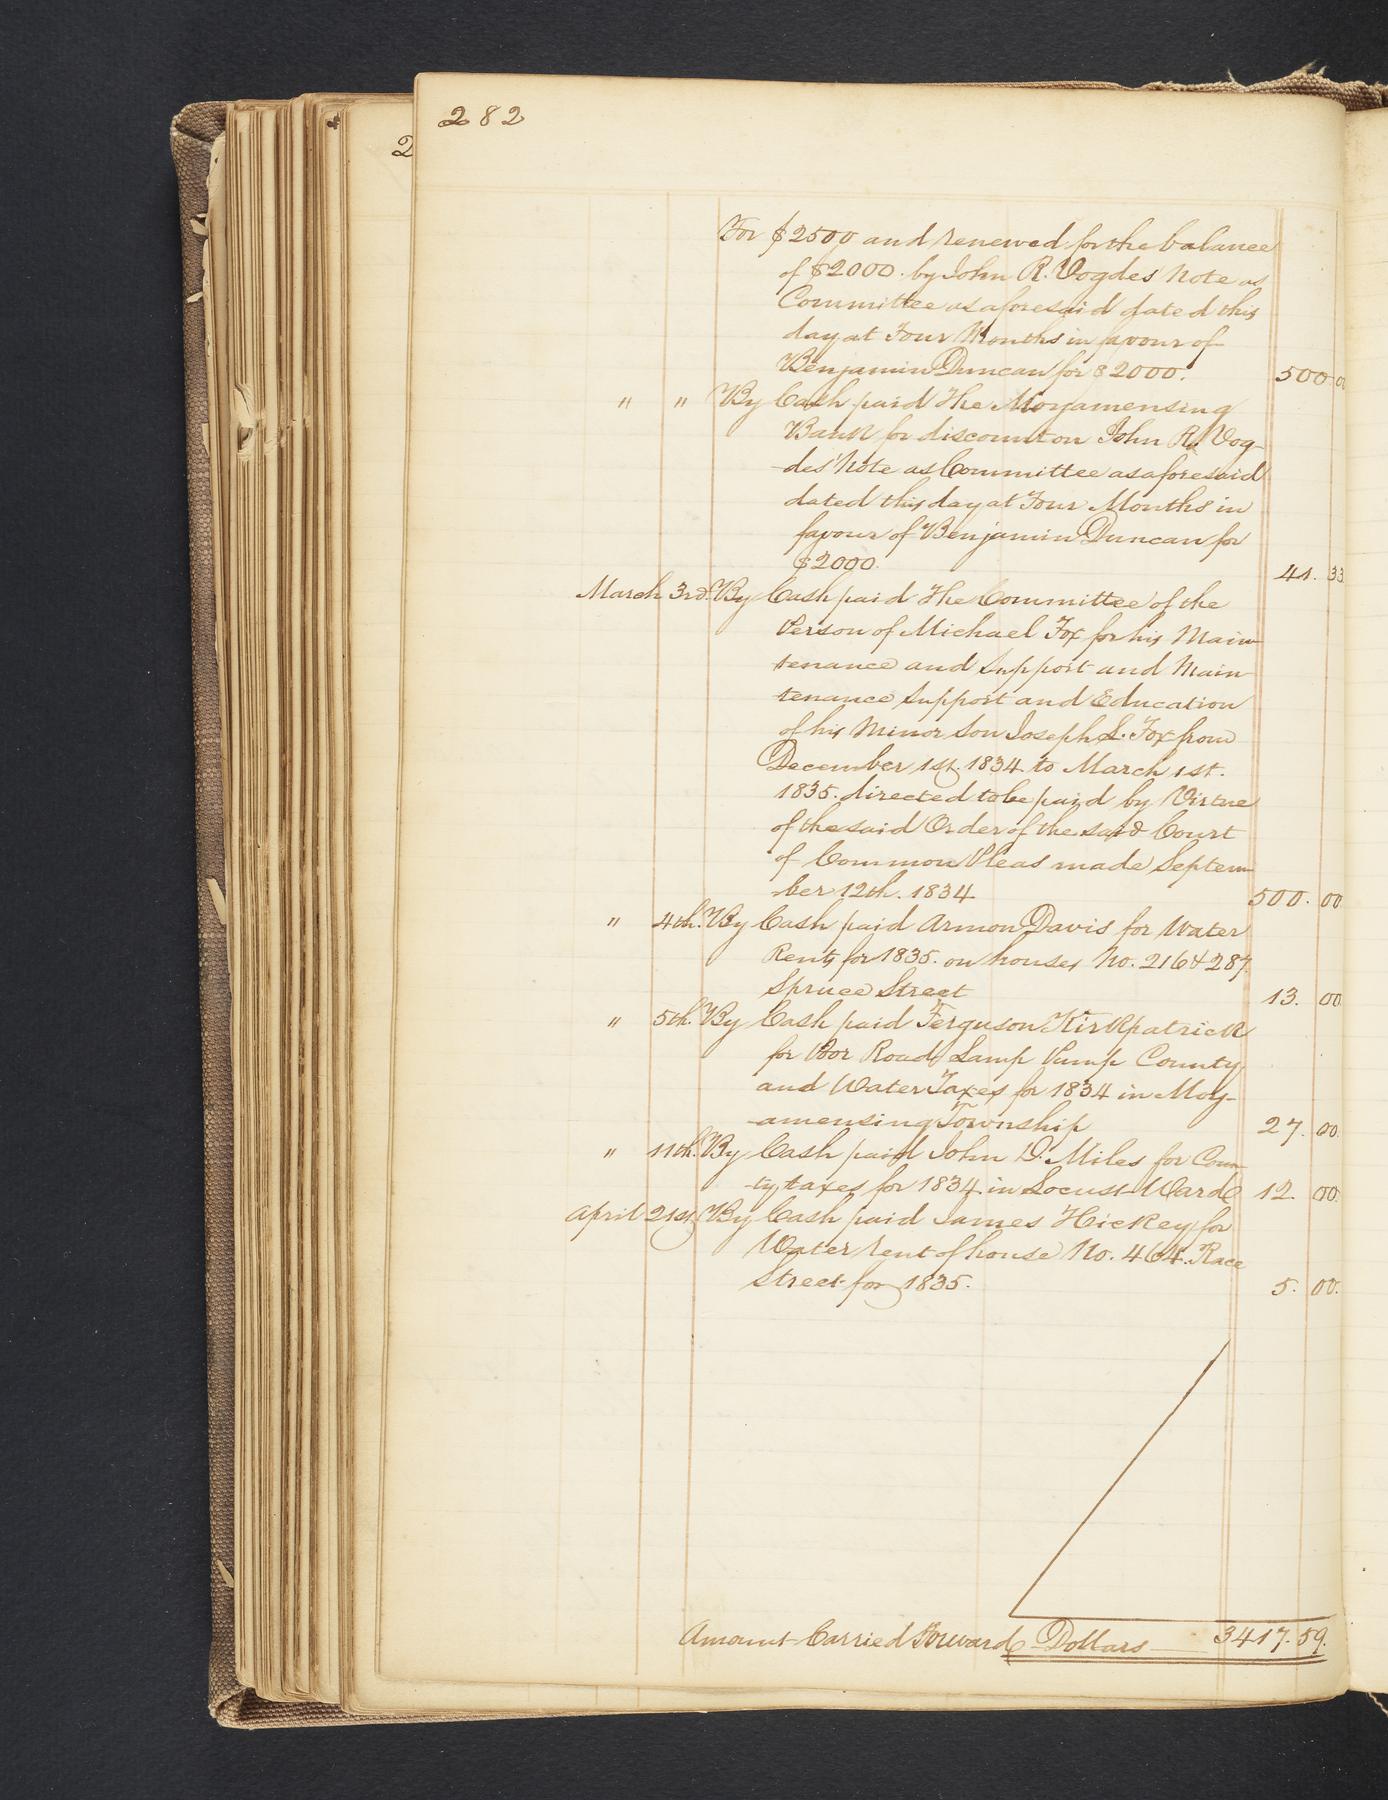 282
2
For $2500 and renewed for the balance
of $2000. by John R. Vogdes Note as
Committee as aforesaid dated this
day at Four Months in favour of
Benjamin Duncan for $2000. 500 00
" " By Cash paid The Moyamensing
Bank for discount on John R. Vog-
-des' Note as Committee as aforesaid
dated this day at Four Months in
favour of Benjamin Duncan for
$2000. 41. 33
March 3rd. By Cash paid The Committee of the
Person of Michael Fox for his Main-
tenance and Support and Main
tenance Support and Education
of his Minor Son Joseph S. Fox from
December 1st. 1834. to March 1st.
1835. directed to be paid by Virtue
of the said Order of the said Court
of Common Pleas made Septem-
-ber 12th. 1834 500. 00
" 4th. By Cash paid Armon Davis for Water
Rents for 1835. on houses No. 216 & 287
Spruce Street 13. 00
" 5th. By Cash paid Ferguson Kirkpatrick
for Poor Road Lamp Pump County
and Water Taxes for 1834 in Moy-
-amensing Township 27. 00.
" 11th. By Cash paid John D. Miles for Coun-
-ty taxes for 1834. in Locust Ward 12. 00.
April 21st. By Cash paid James Hickey for
Water rent of house No. 464. Race
Street for 1835. 5. 00.
Amount Carried Forward Dollars 3417. 59.